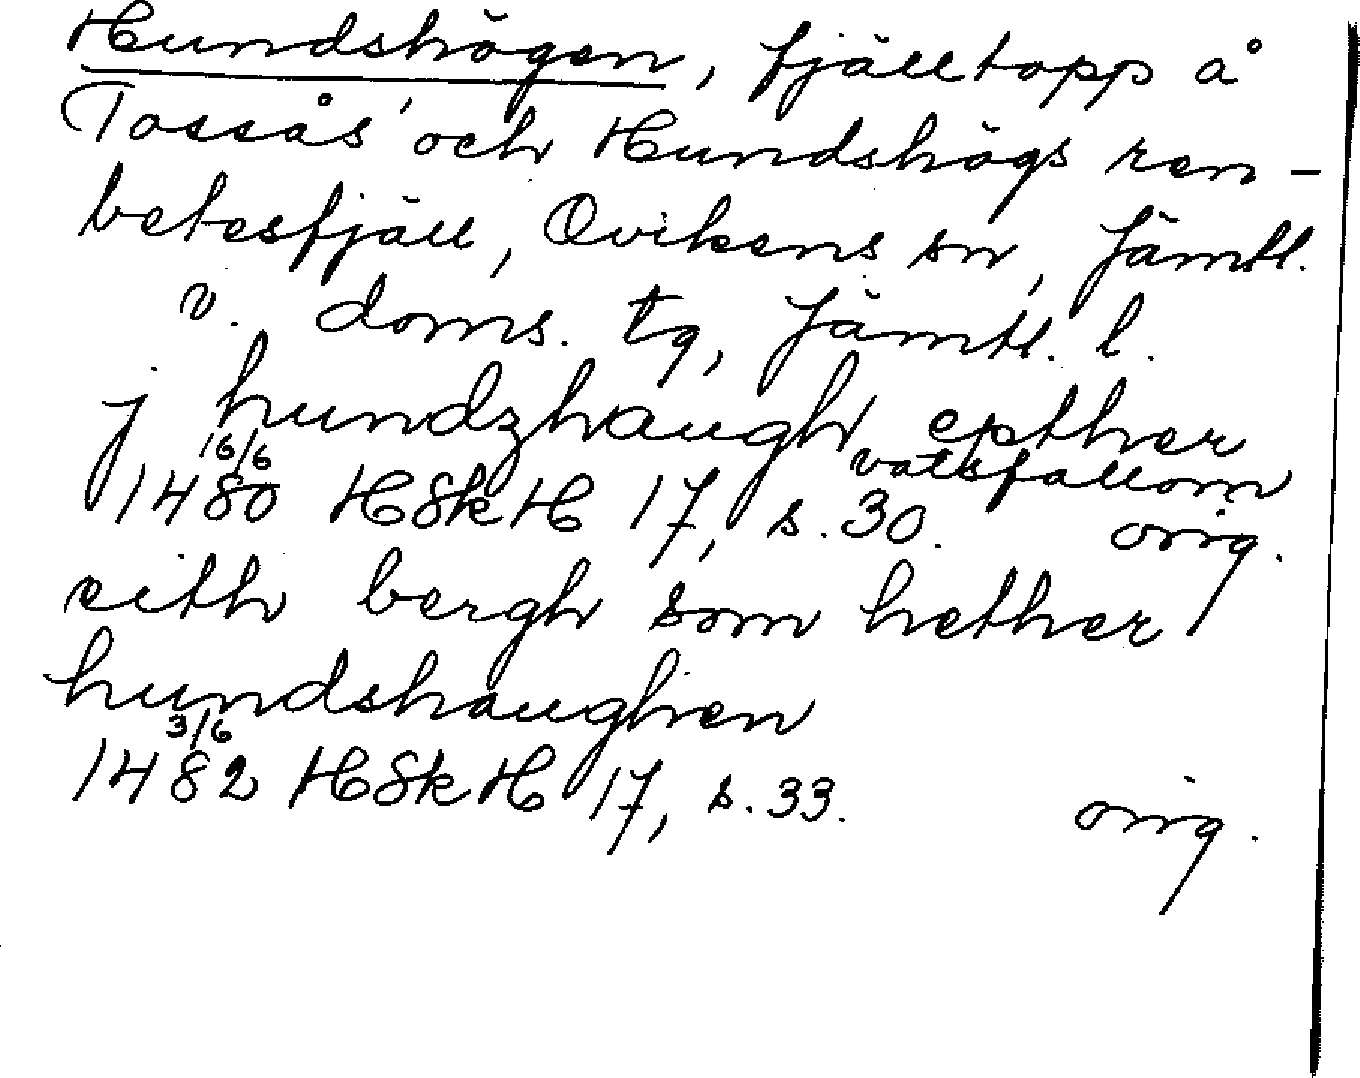 Hundshögen, fjälltopp å
Tossås och Hundshögs ren-
betesfjäll, Ovikens sn, Jämtl.
v. doms. tg, Jämtl. l.
j hundzhaugh epther
vatsfallom
16/6
1480 HSkH 17, s. 30. orig.
eith bergh som hether
hundshaughen
3/6
1482 HSkH 17, s. 33. orig.